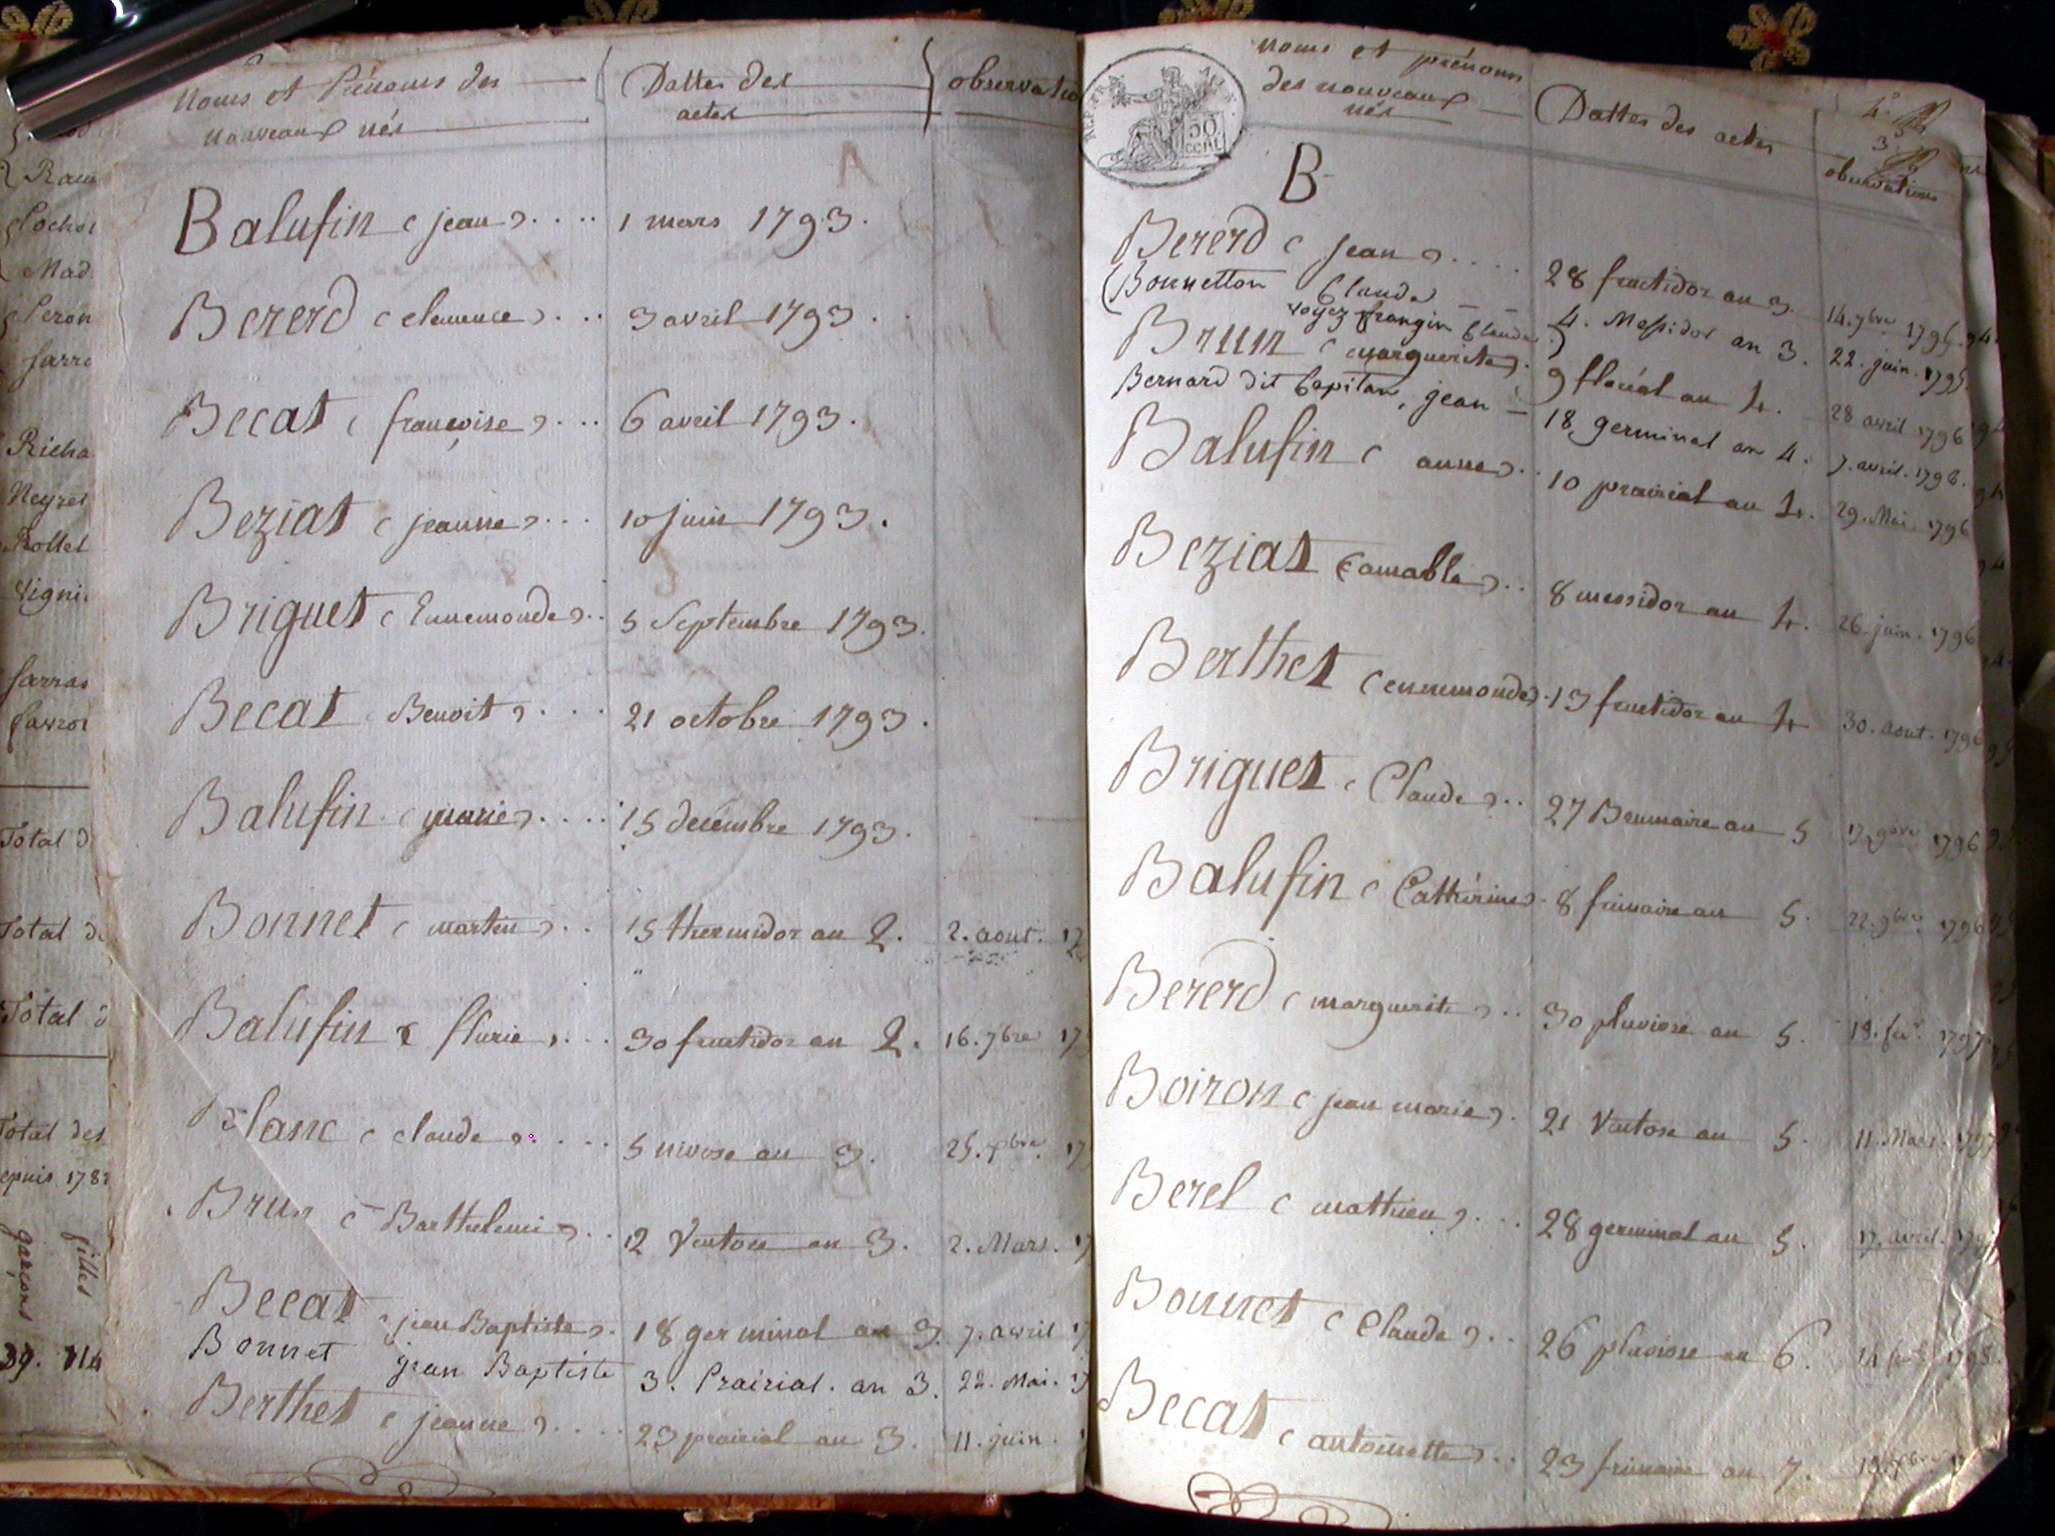 Noms et Prénoms des nouveaux nés
Dattes des actes
observatio
Balufin ( jean ) .... 1 mars 1793.
Bererd ( clemence ) ... 3 avril 1793 ..
Becat ( françoise ) ... 6 avril 1793.
Beziat ( jeanne ) ... 10 juin 1793.
Briguet ( Ennemonde ) .. 5 Septembre 1793.
Becat Benoit ) .... 21 octobre 1793.
Balufin ( marie ) .... 15 decembre 1793.
Bonnet ( martin ) .. 15 thermidor an 2. 2. aout. 17
Balufin ( flurie ) ... 30 fructidor an 2. 16. 7bre 17
Blanc ( claude ) .... 5 nivose an 3. 25. xbre. 17
Brun ( Barthelemi ) .. 12 Ventose an 3. 2. Mars. 17
Becat ( jean Baptiste ) . 18 germinal an 3. 7. avril 17
Bonnet jean Baptiste 3. Prairial. an 3. 22. Mai. 17
Berthet ( jeanne ) .... 23 prairial an 3. 11. juin.
Raui
Richa
Neyret
Rollet
Vigni
Total d
Total de
Total d
Total des
epuis 1783
filles
garçons
39. 114
Noms et prénoms des nouveaux nés
Dattes des actes
observations
50
CENT
B
Bererd ( jean ) .... 28 fructidor an 3. 14. 7bre 1795.
(Bonnetton Claude — — 4. Messidor an 3. 22. juin. 1795
voyez frangin Claude )
Brun ( marguerite ) . 9 floréal an 4. 28 avril 1796
Bernard dit Capitan, jean — 18 germinal an 4. 7. avril. 1796.
Balufin ( anne ) .. 10 prairial an 4. 29. Mai. 1796
Beziat ( amable ) .. 8 messidor an 4. 26. juin. 1796
Berthet ( ennemonde ) . 13 fructidor an 4 30. aout. 1796
Briguet ( Claude ) .. 27 Brumaire an 5 17. 9bre 1796
Balufin ( Cathérine ) . 8 frimaire an 5. 9bre. 1796
Bererd ( marguerite ) .. 30 pluviose an 5. 18. fev. 1797.
Boiron ( jean marie ) . 21 Ventose an 5. 11. Mars. 1797
Berel ( mathieu ) .... 28 germinal an 5. 17. avril. 179
Bonnet ( Claude ) .. 26 pluviose an 6. 14 1798.
Becat ( antoinette ) .. 23 frimaire an 7.